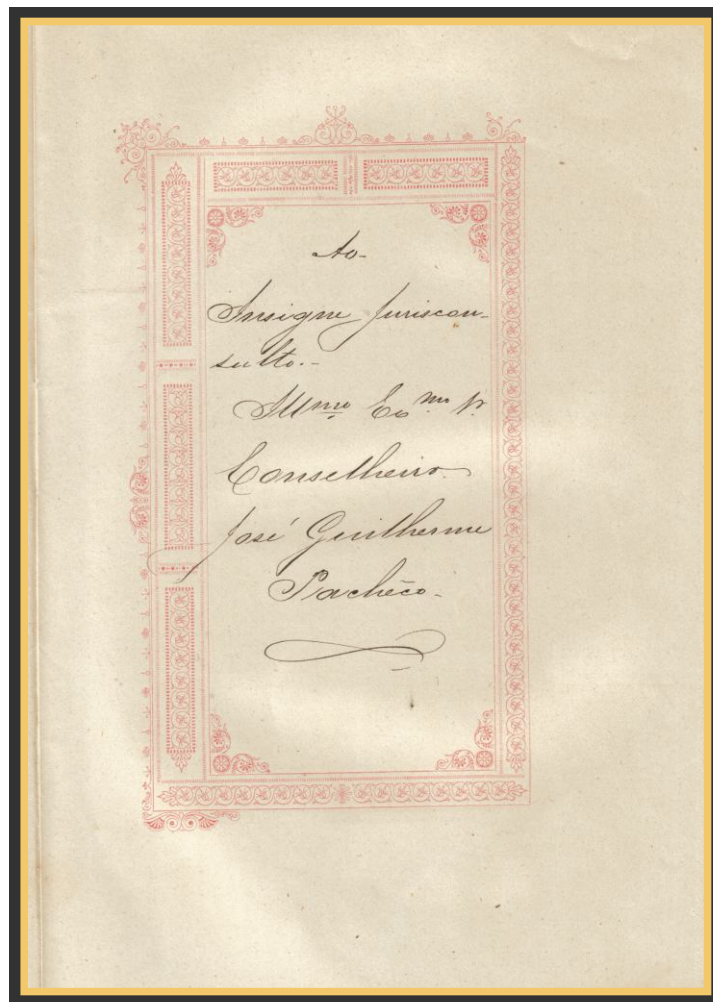 Ao-
Insigne Juriscon-
sulto.-
Illmo Exmo Sr.
Conselheiro.
José Guilherme
Pachêco-